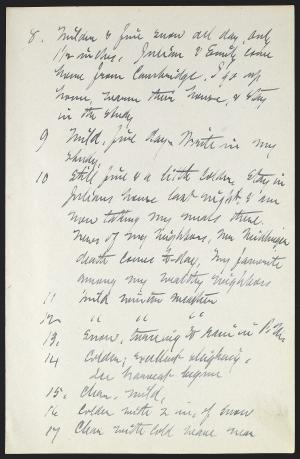 8. Milder & fine snow all day, only
1½ inches. Julian & Emily come
home from Cambridge. I go up
home, warm their house, & stay
in the study
9 Mild, fine day. Write in my
study.
10 Still fine & a little colder. Stay in
Julians house last night & am
now taking my meals there.
News of my Neighbors, Mr
death comes to-day, My favorite
among my wealthy neighbors
11 Mild winter weather
12 " " "
13, Snow, turning to rain in P.M.
14 Colder; excellent sleighing,
Ice harvest begins
15. Clear, mild,
16 Colder with 2 in, of snow
17 Clear with cold wave near